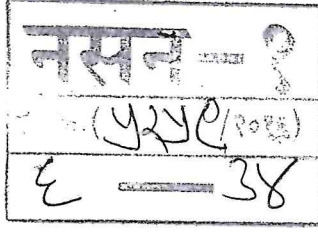 नसन - १
(५२५९/२०१६)
६ - ३४